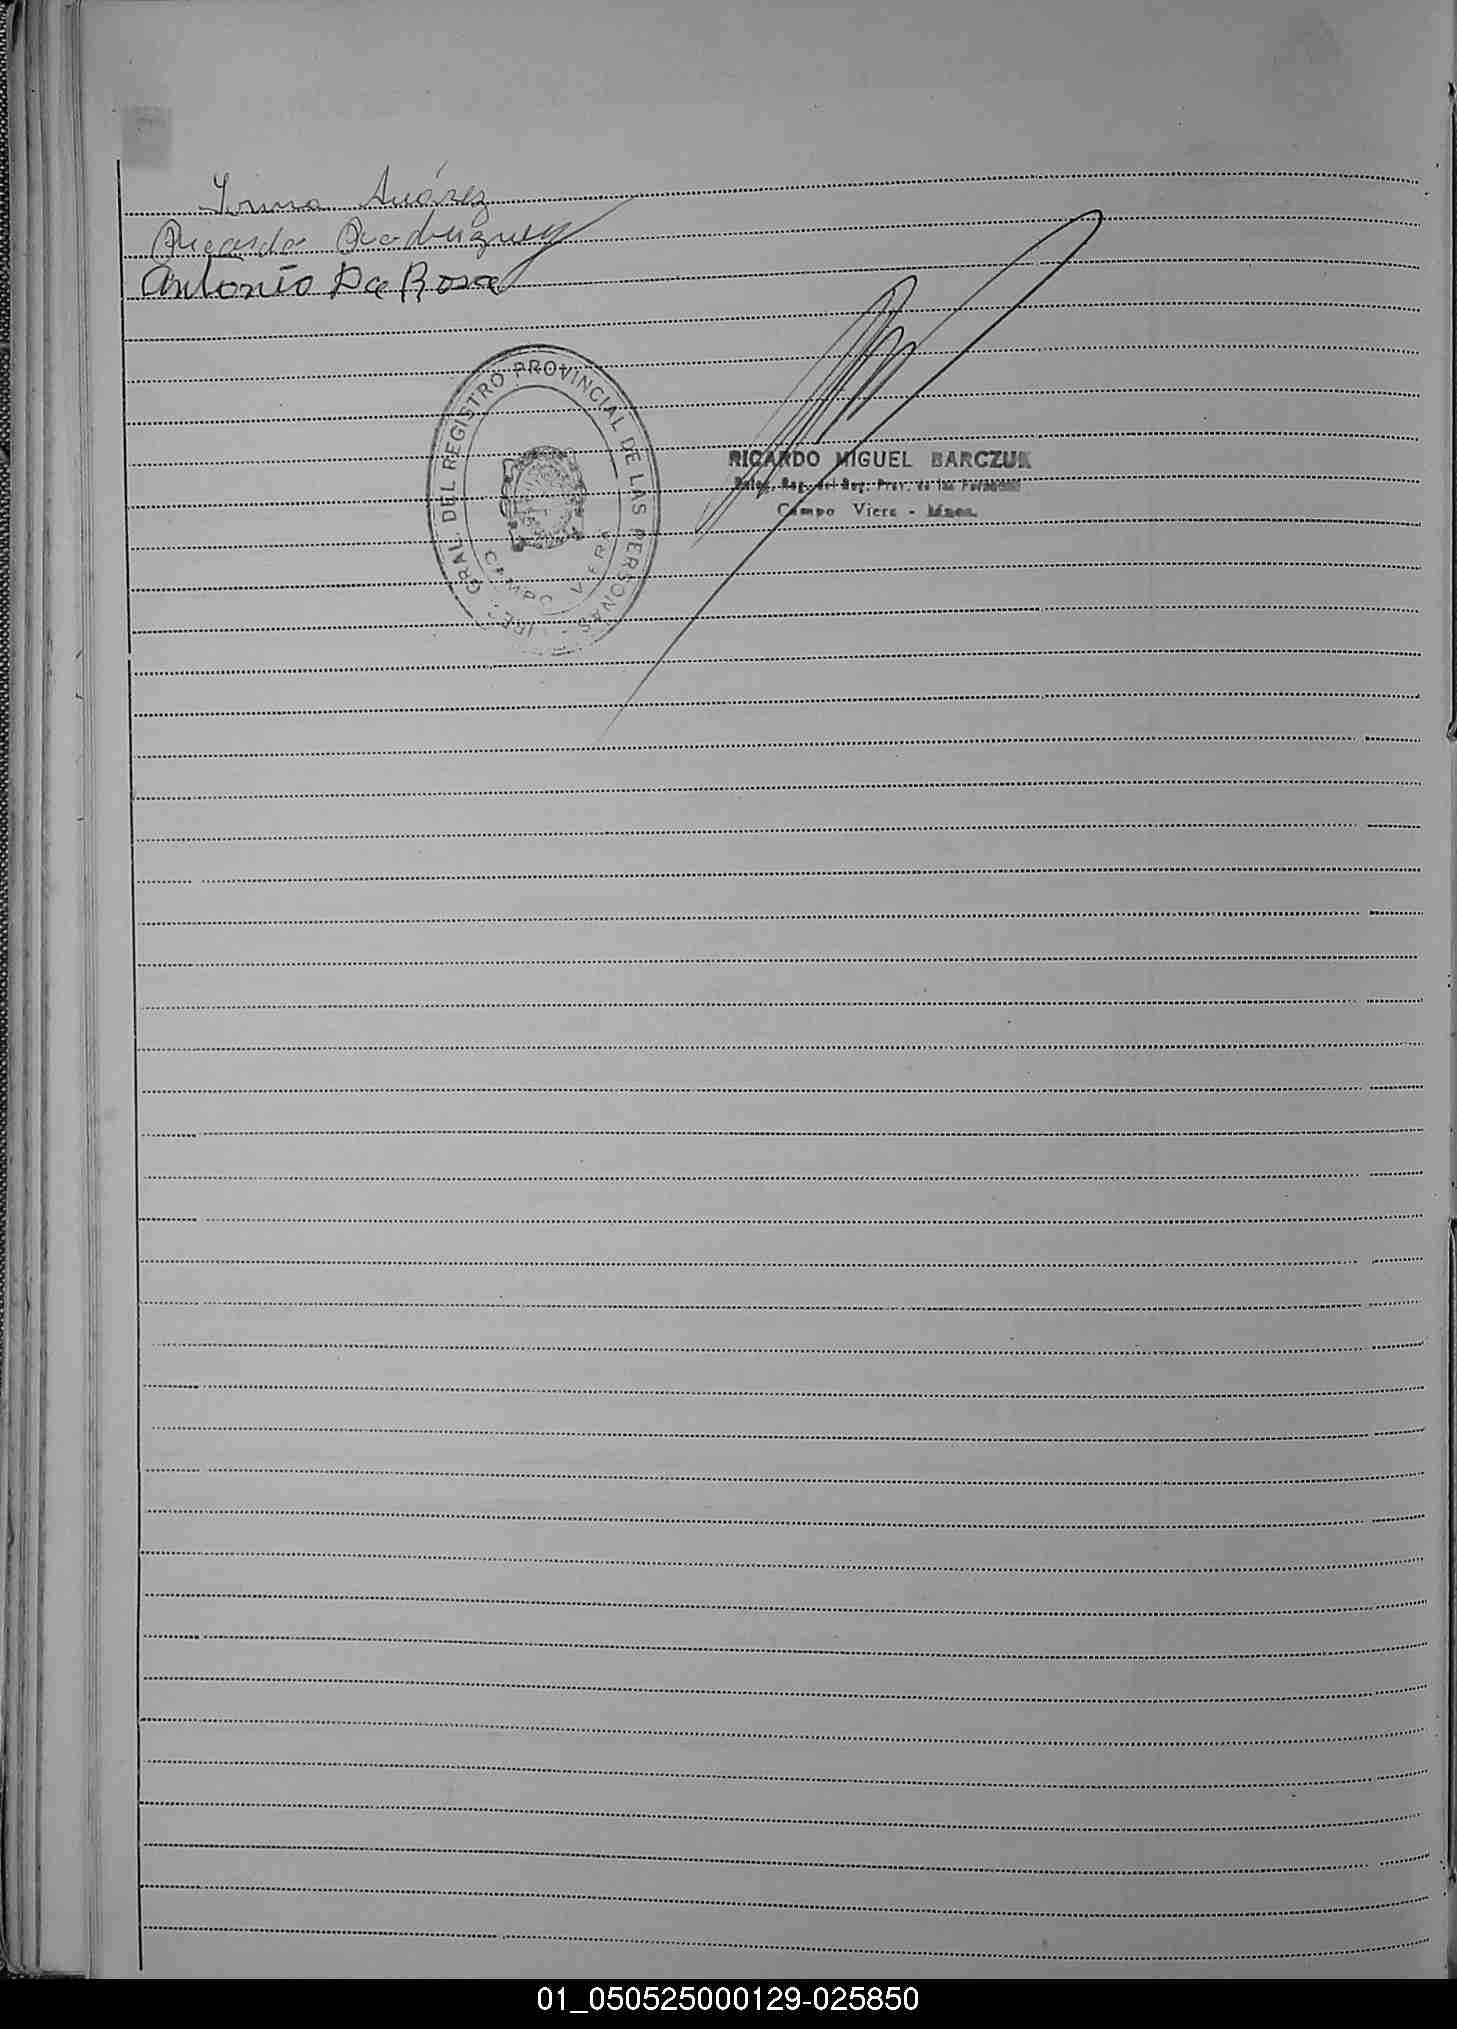 Irma Suárez
Ricardo Rodriguez
Antonio Da Rosa
DIREC. GRAL. DEL REGISTRO PROVINCIAL DE LAS PERSONAS
CAMPO VIERA
RICARDO MIGUEL BARCZUK
Deleg. Reg. del Reg. Prov. de las Personas
Campo Viera - Mnes.
01_050525000129-025850